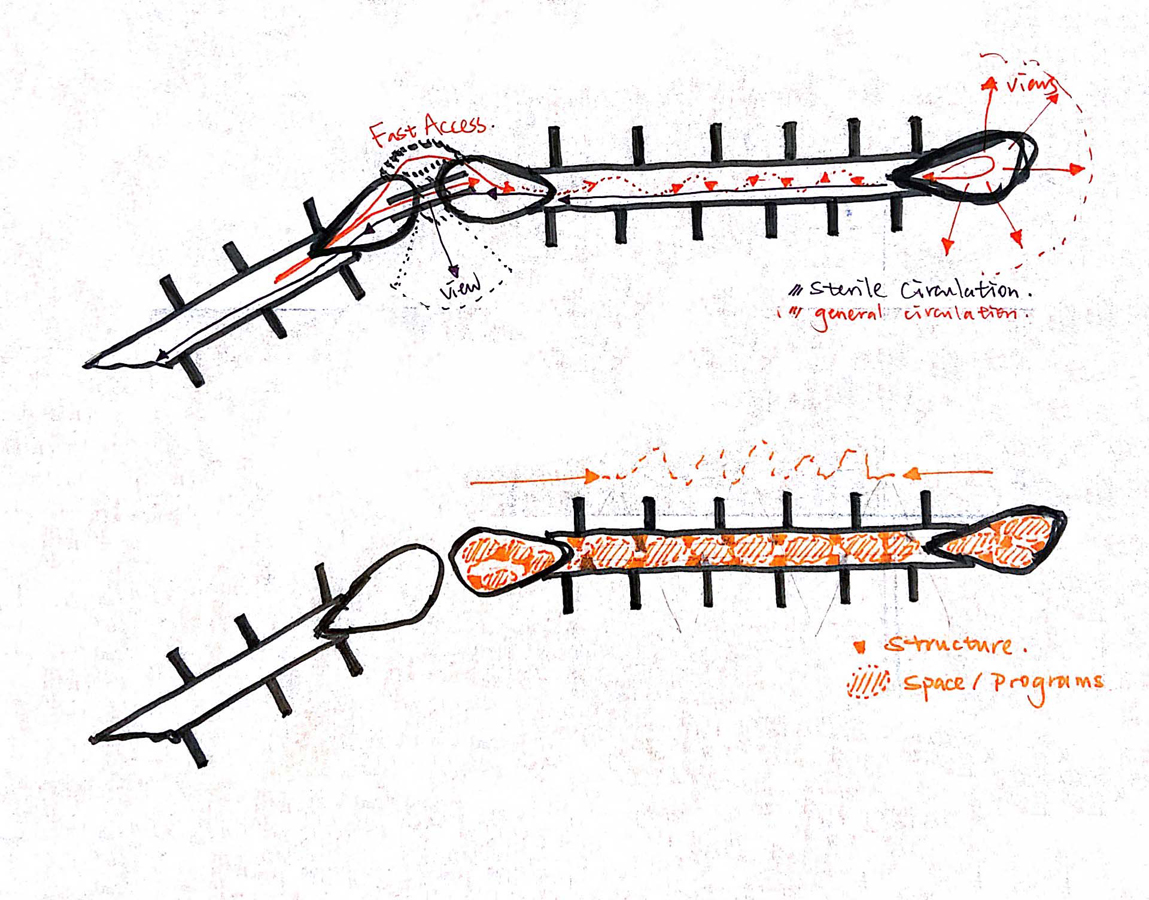 Fast Access.
views
view
Sterile Circulation.
general circulation.
Structure.
Space / Programs